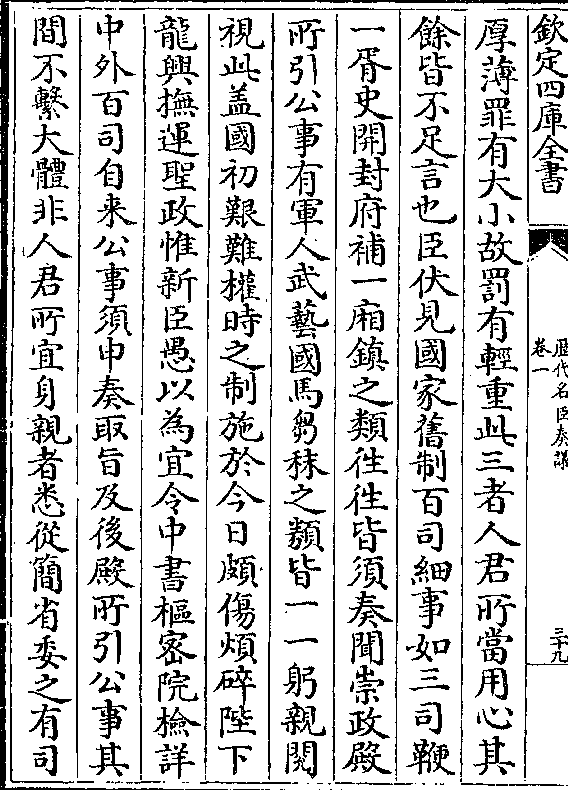 欽定四庫全書
歷代名臣奏議
卷一
三十九
厚薄罪有大小故罰有輕重此三者人君所當用心其
餘皆不足言也臣伏見國家舊制百司細事如三司鞭
一胥史開封府補一廂鎮之類徃徃皆須奏聞崇政殿
所引公事有軍人武藝國馬芻秣之類皆一一躬親閱
視此盖國初艱難權時之制施於今日頗傷煩碎陛下
龍興撫運聖政惟新臣愚以為宜令中書樞密院檢詳
中外百司自来公事須申奏取旨及後殿所引公事其
間不繫大體非人君所宜身親者悉從簡省委之有司